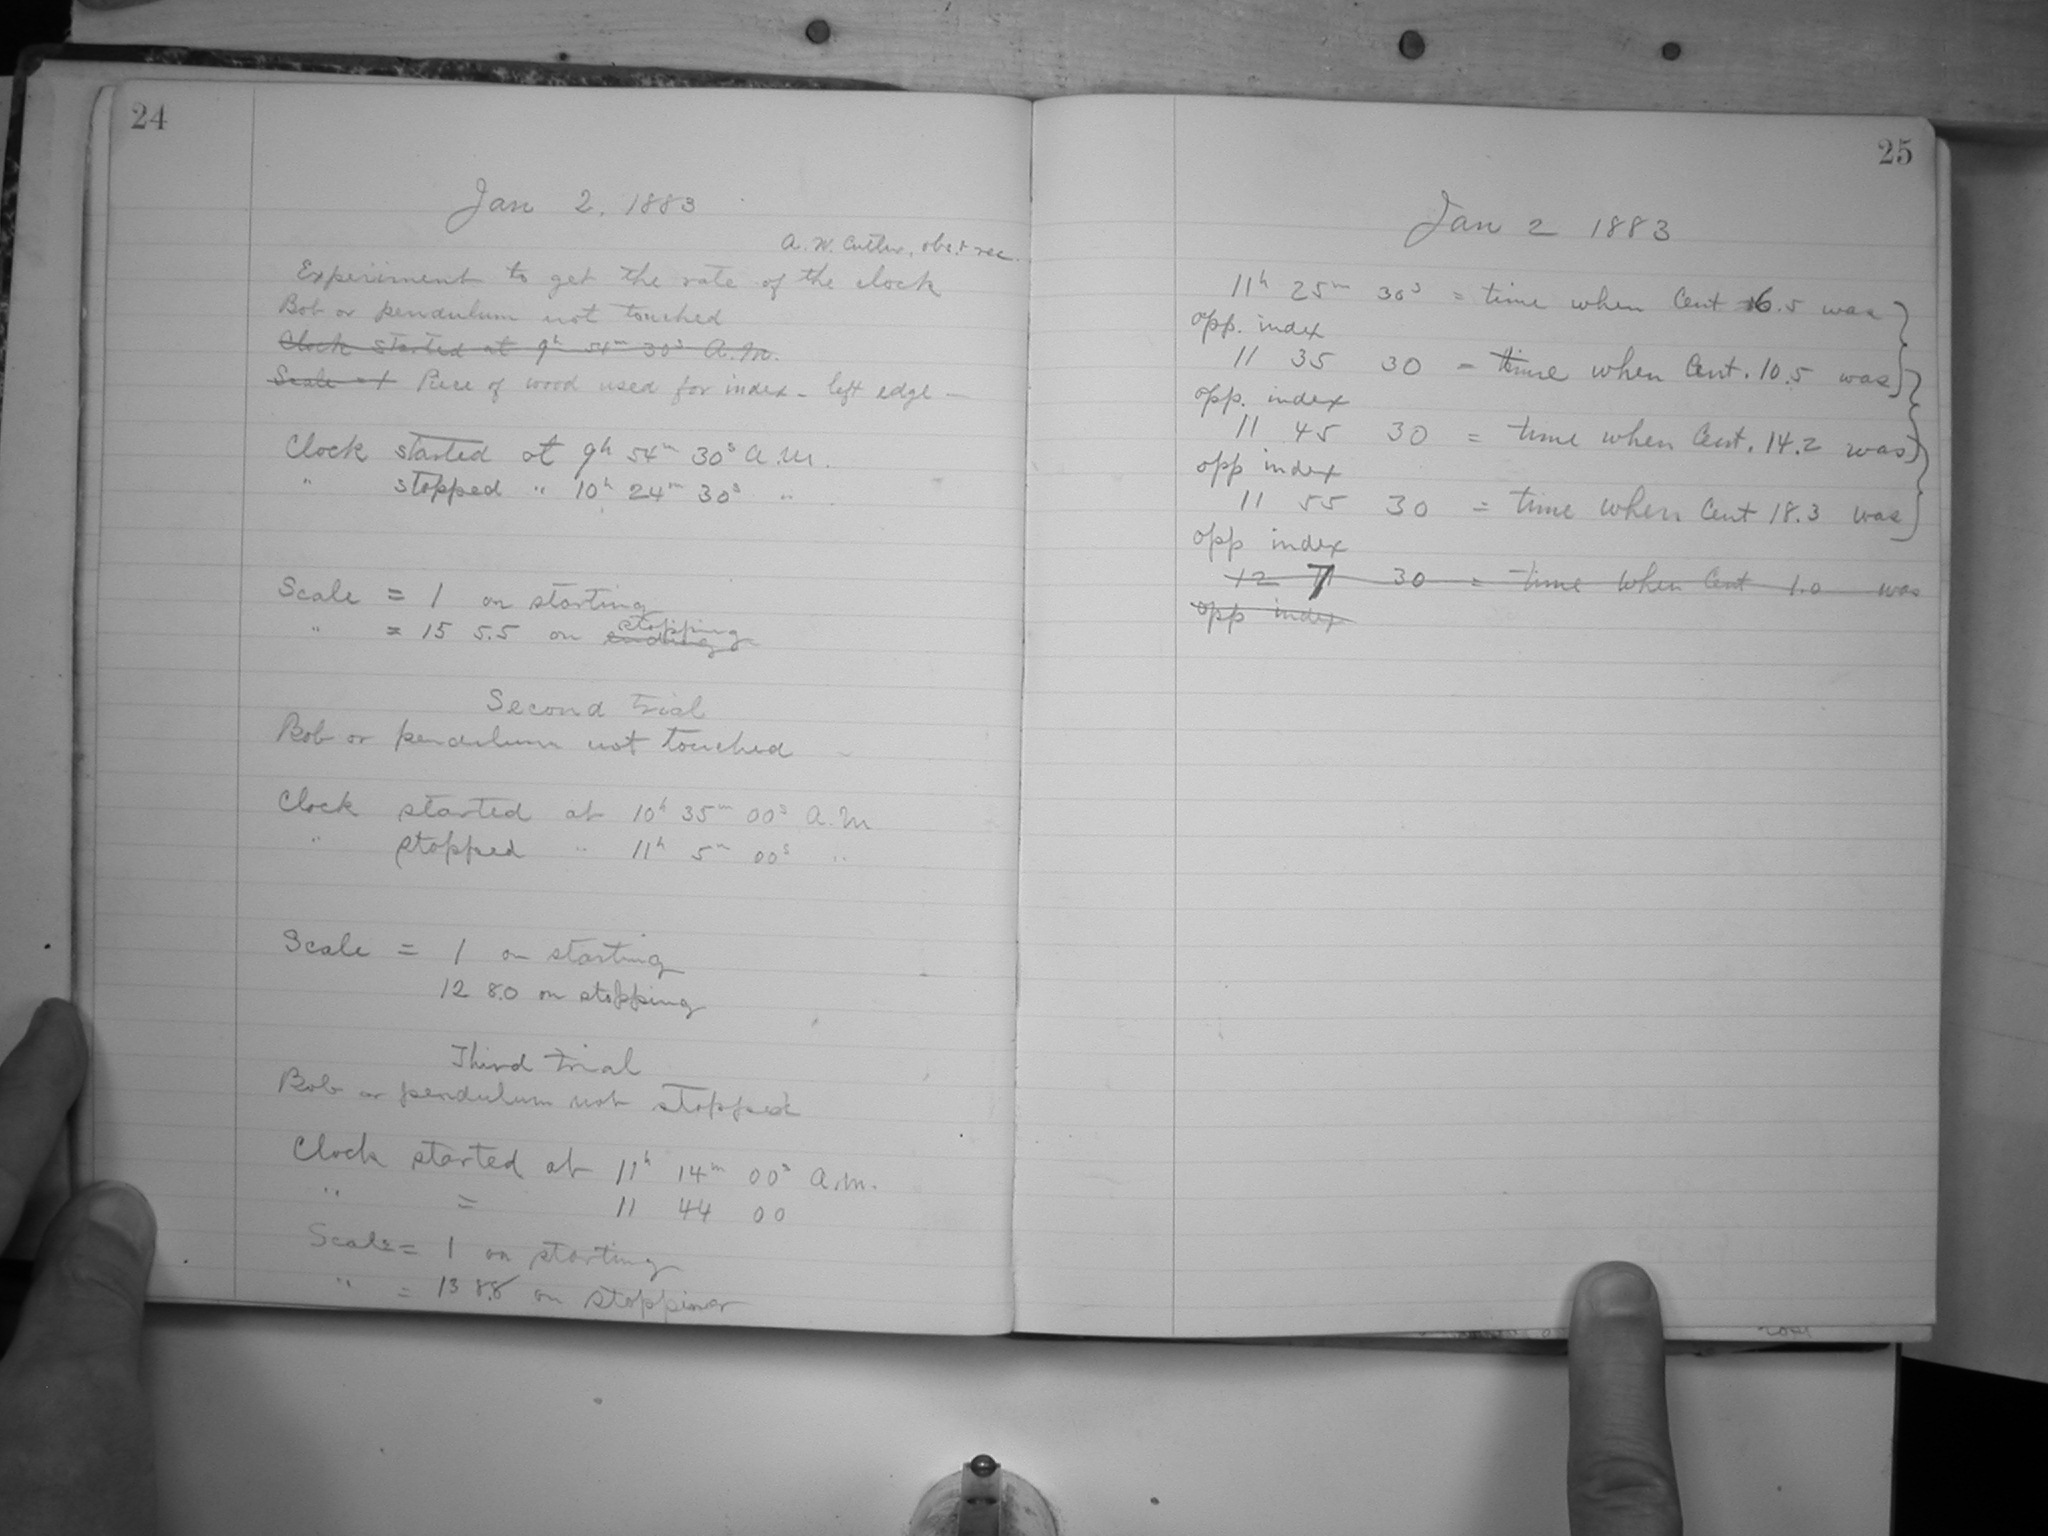 24
Jan 2, 1883
A. W. Cutler, obs. & rec.
Experiment to get the rate of the clock
Bob or pendulum not touched
Clock started at 9h 54m 30s A.M.
Scale = 1 Piece of wood used for index - left edge -
Clock started at 9h 54m 30s A.M.
" stopped " 10h 24m 30s "
Scale = 1 on starting
stopping
" = 15 5.5 on ending
Second trial
Bob or pendulum not touched
Clock started at 10h 35m 00s A.M
" stopped " 11h 5m 00s "
Scale = 1 on starting
12 8.0 on stopping
Third trial
Bob or pendulum not stopped
Clock started at 11h 14m 00s A.M.
" = 11 44 00
Scale = 1 on starting
" = 13 8.8 on stopping
25
Jan 2 1883
11h 25m 30s = time when Cent 6.5 was
opp. index
11 35 30 = time when Cent. 10.5 was
opp. index
11 45 30 = time when Cent. 14.2 was
opp index
11 55 30 = time when Cent 18.3 was
opp index
12 7 30 = time when Cent 1.0 was
opp index